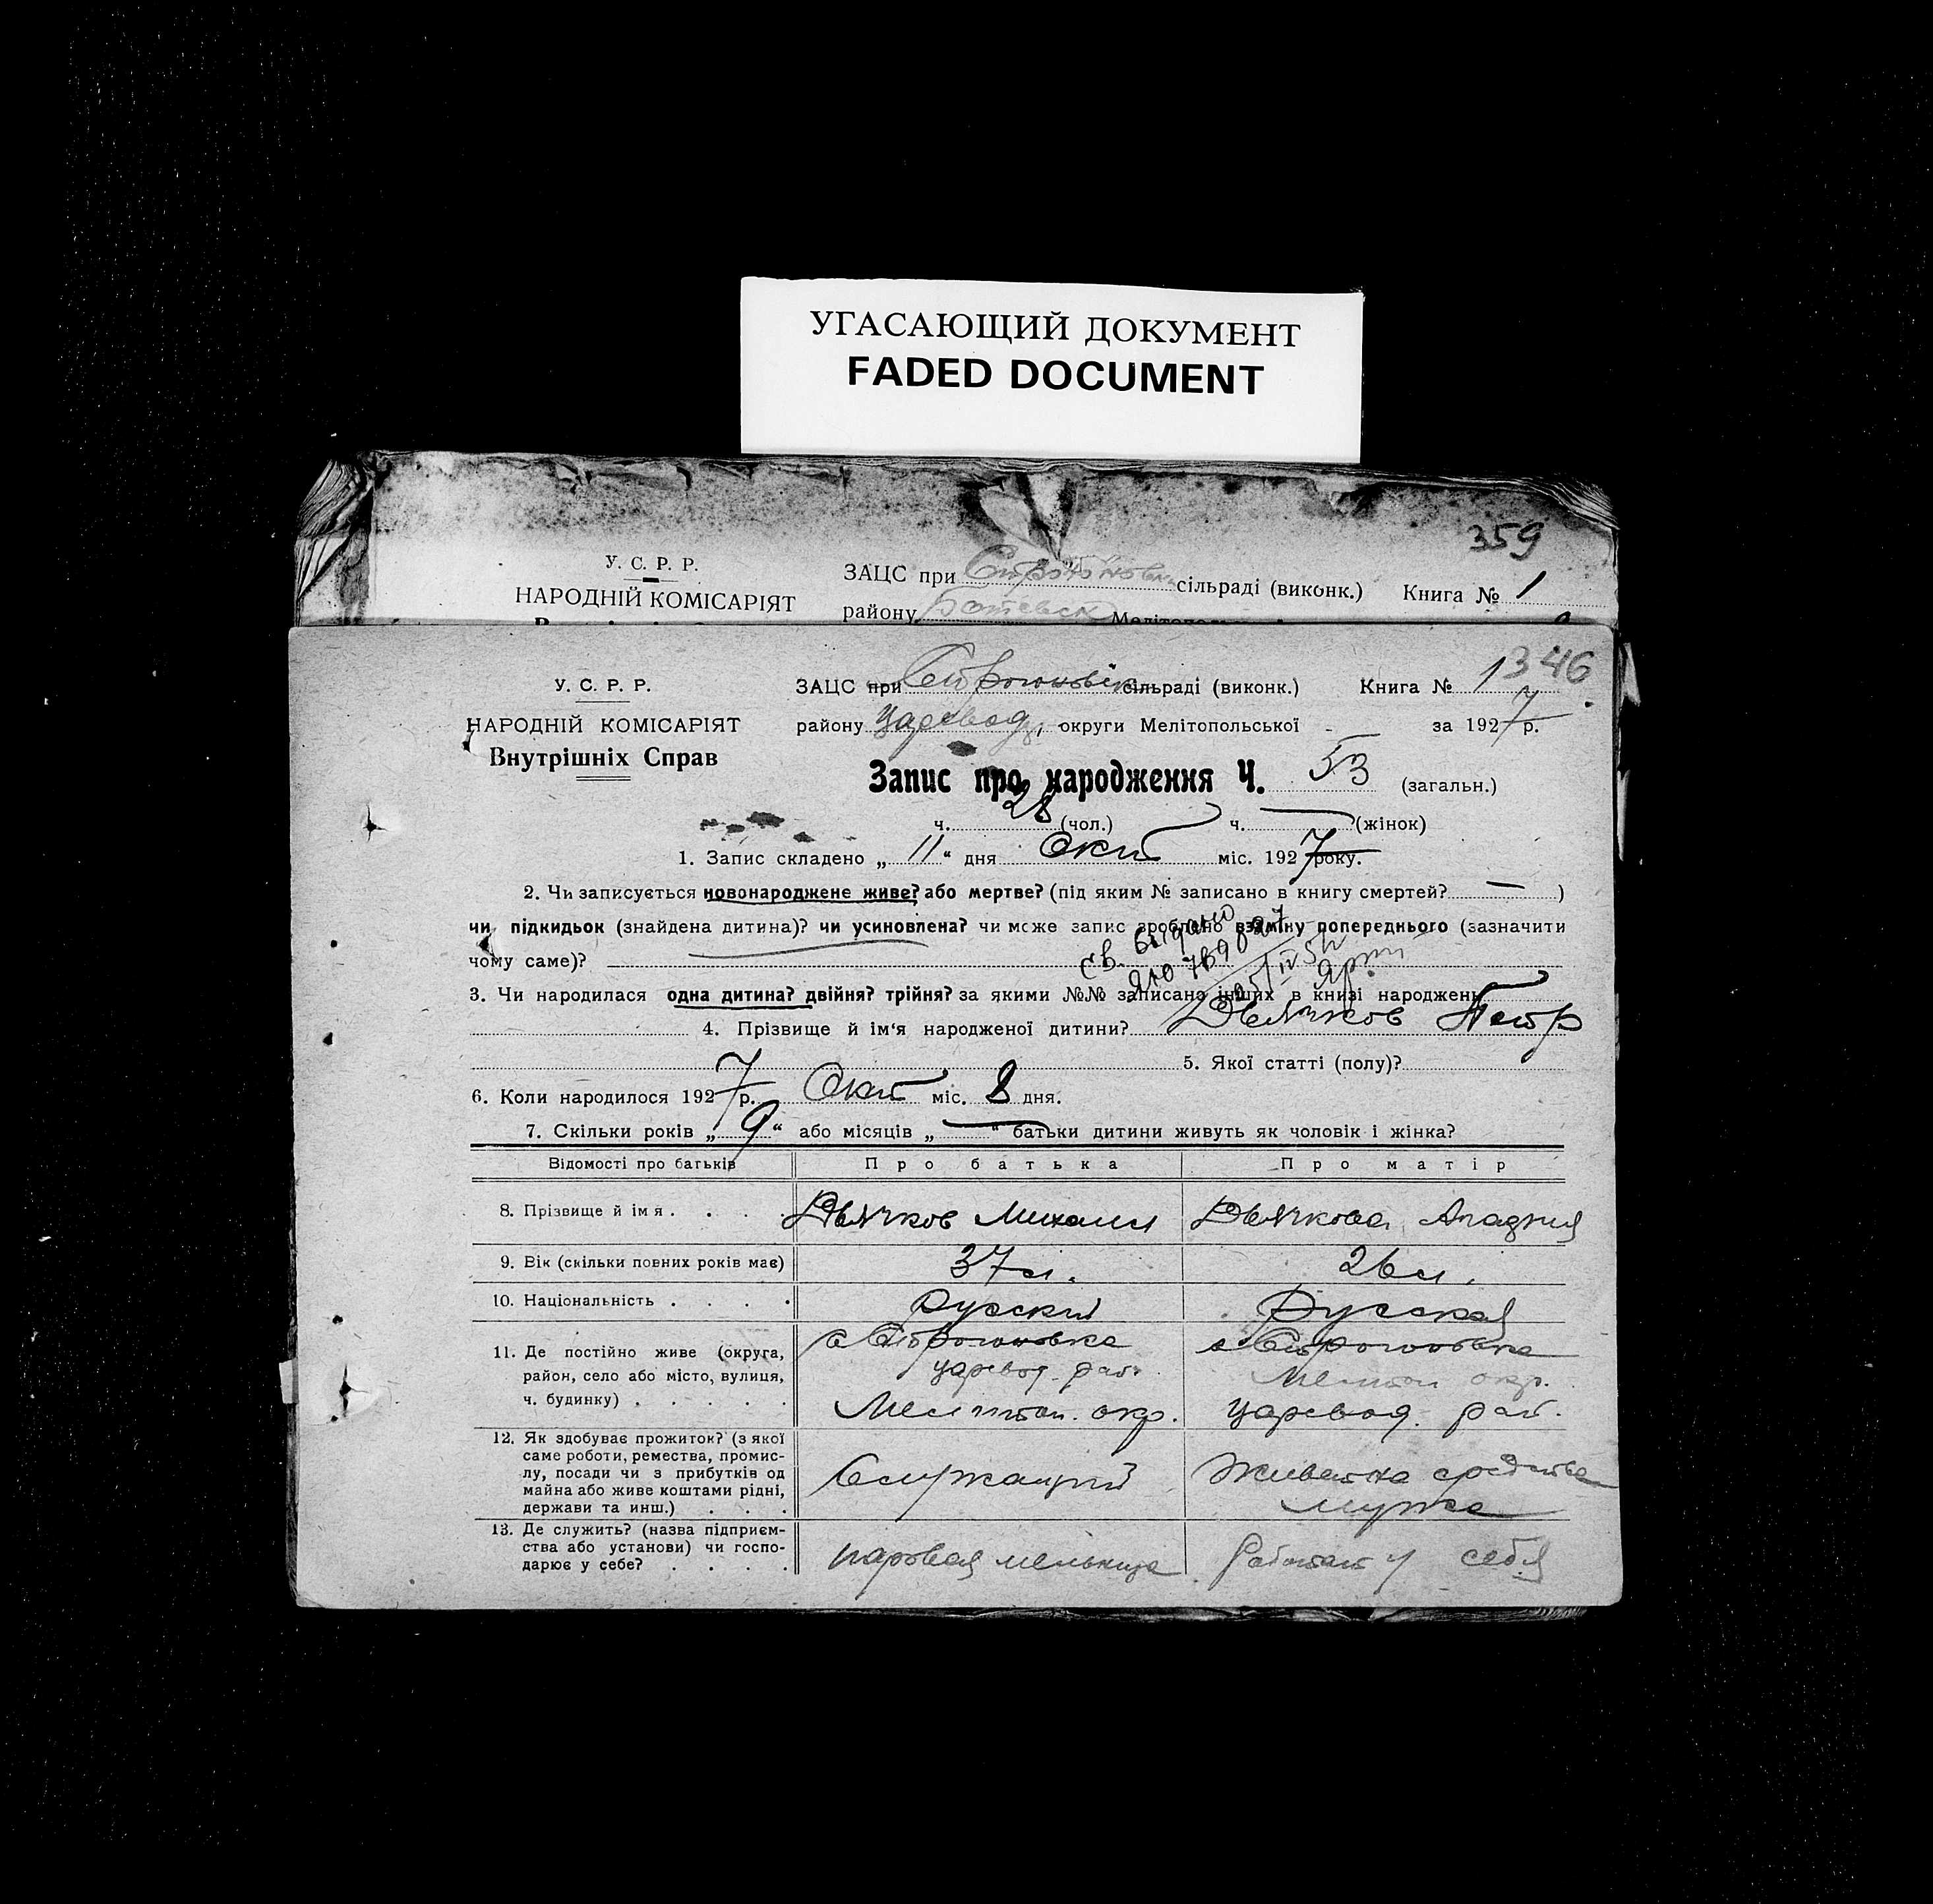 УГАСАЮЩИЙ ДОКУМЕНТ
FADED DOCUMENT
359
У. С. Р. Р.
НАРОДНІЙ КОМІСАРІЯТ
ЗАЦС при сільраді (виконк.) Книга № 1
району Ботевск
1346
У. С. Р. Р.
НАРОДНІЙ КОМІСАРІЯТ
Внутрішніх Справ
ЗАЦС при Строгоновск сільраді (виконк.) Книга № 1
району Царевод, округи Мелітопольської за 1927 р.
Запис про народження Ч. 53 (загальн.)
ч. 28 (чол.) ч. (жінок)
1. Запис складено „ 11 “ дня Окт міс. 1927 року.
2. Чи записується новонароджене живе? або мертве? (під яким № записано в книгу смертей? — )
чи підкидьок (знайдена дитина)? чи усиновлена? чи може запис зроблено взаміну попереднього (зазначити
чому саме)?
Св. видано
3. Чи народилася одна дитина? двійня? трійня? за якими №№ записано інших в книзі народжень
4. Прізвище й ім'я народженої дитини? Дьячков Петр
5. Якої статті (полу)?
6. Коли народилося 1927 р. Окт міс. 8 дня.
7. Скільки років „ 9 “ або місяців „ — “ батьки дитини живуть як чоловік і жінка?
Відомості про батьків Про батька Про матір
8. Прізвище й ім я . . . . Дьячков Михаил Дьячкова
9. Вік (скільки повних років має) 37 л. 26 л.
10. Національність . . . . Русский Русская
11. Де постійно живе (округа,
район, село або місто, вулиця,
ч. будинку) . . . . .
с Строгоновка
царевод. рай.
Мелитоп. окр.
с Строгоновка
Мелитоп окр.
царевод. рай.
12. Як здобуває прожиток? (з якої
саме роботи, ремества, промис-
лу, посади чи з прибутків од
майна або живе коштами рідні,
держави та инш.) . . .
Служащий
Живет на средства
мужа
13. Де служить? (назва підприєм-
ства або установи) чи госпо-
дарює у себе? . . . .
паровая мельница
Работает у себя